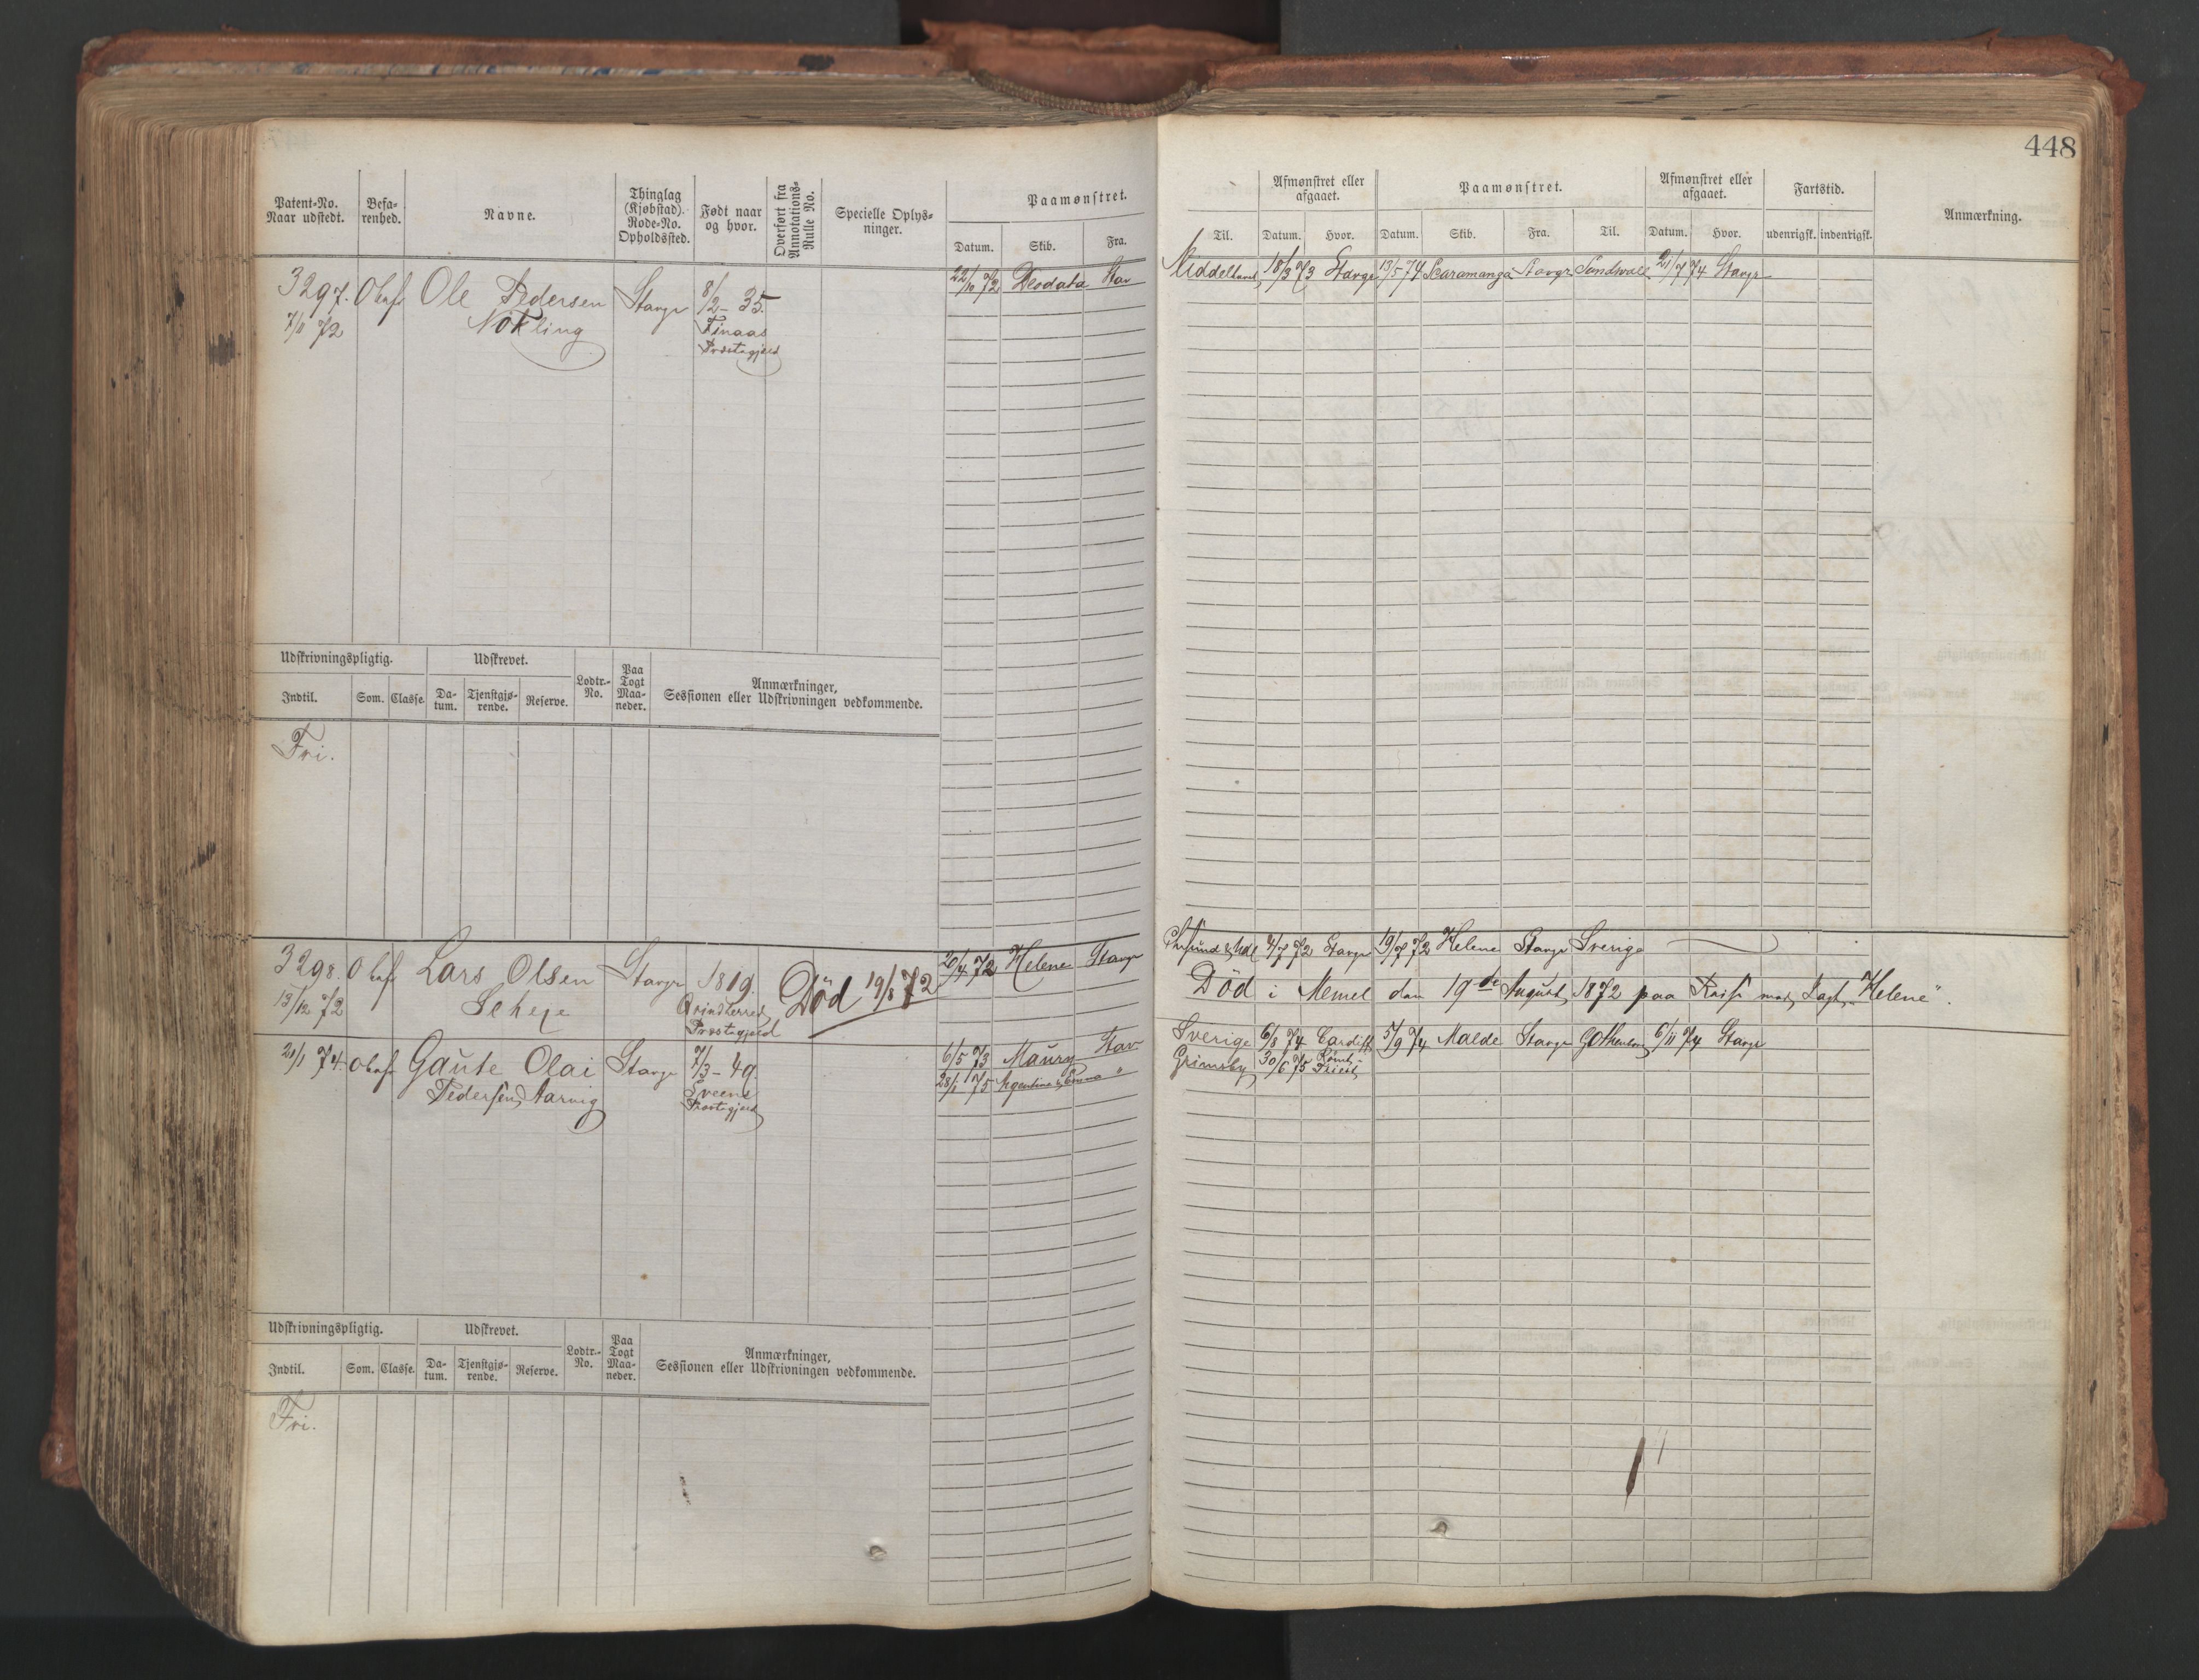 448
Patent-No. Naar udstedt.
Befarenhed.
Navne.
Thinglag (Kjøbstad). Rode-No. Opholdssted.
Født naar og hvor.
Overført fra Annotations-Rulle No.
Specielle Oplysninger.
Paamønstret.
Datum. Skib. Fra.
Til.
Afmønstret eller afgaaet.
Datum. Hvor.
Paamønstret.
Datum. Skib. Fra. Til.
Afmønstret eller afgaaet.
Datum. Hvor.
Fartstid.
udenrigsk. indenrigsk.
Anmærkning.
3297. Obef Ole Pedersen Stavgr 8/2 - 35. 22/10 72 Deodata Stav
7/11 72 Nökling Finaas
Præstegjeld
Middelhavet 18/3 73 Stavgr 13/5 74 Scaramanga Stavgr Sundsvall 21/7 74 Stavgr
Udskrivningspligtig. Udskrevet. Lodtr.-No. Paa Togt Maaneder. Anmærkninger, Sessionen eller Udskrivningen vedkommende.
Indtil. Som. Classe. Datum. Tjenstgjørende. Reserve.
Fri.
3298. Obef Lars Olsen Stavgr 1819. Död 19/8 72 20/4 72 Helene Stavgr
13/12 72 Scheje Qvindherred
Præstegjeld
4/7 72 Stavgr 19/7 72 Helene Stavgr Sverige
Död i Memel den 19de August 1872 paa Reise med Jagt "Helene".
21/1 74. Obef Gaute Olai Stavgr 7/3 - 49 6/5 73 Maury Stav
Pedersen Aarvig Sveens Præstegjeld 28/1 75 Argentina Emma "
Sverige 6/8 74 Cardiff 5/9 74 Malde Stavgr Gothenborg 6/11 74 Stavgr
Grimsby 30/6 75 Triest
Udskrivningspligtig. Udskrevet. Lodtr.-No. Paa Togt Maaneder. Anmærkninger, Sessionen eller Udskrivningen vedkommende.
Indtil. Som. Classe. Datum. Tjenstgjørende. Reserve.
Fri.